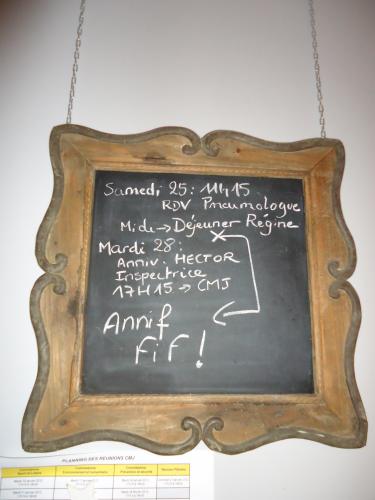 Samedi 25: 11H15
RDV Pneumologue
Midi → Déjeuner Régine
Mardi 28:
Anniv. HECTOR
Inspectrice
17H15 → CMJ
Annif
FiF!
PLANNING DES REUNIONS CMJ